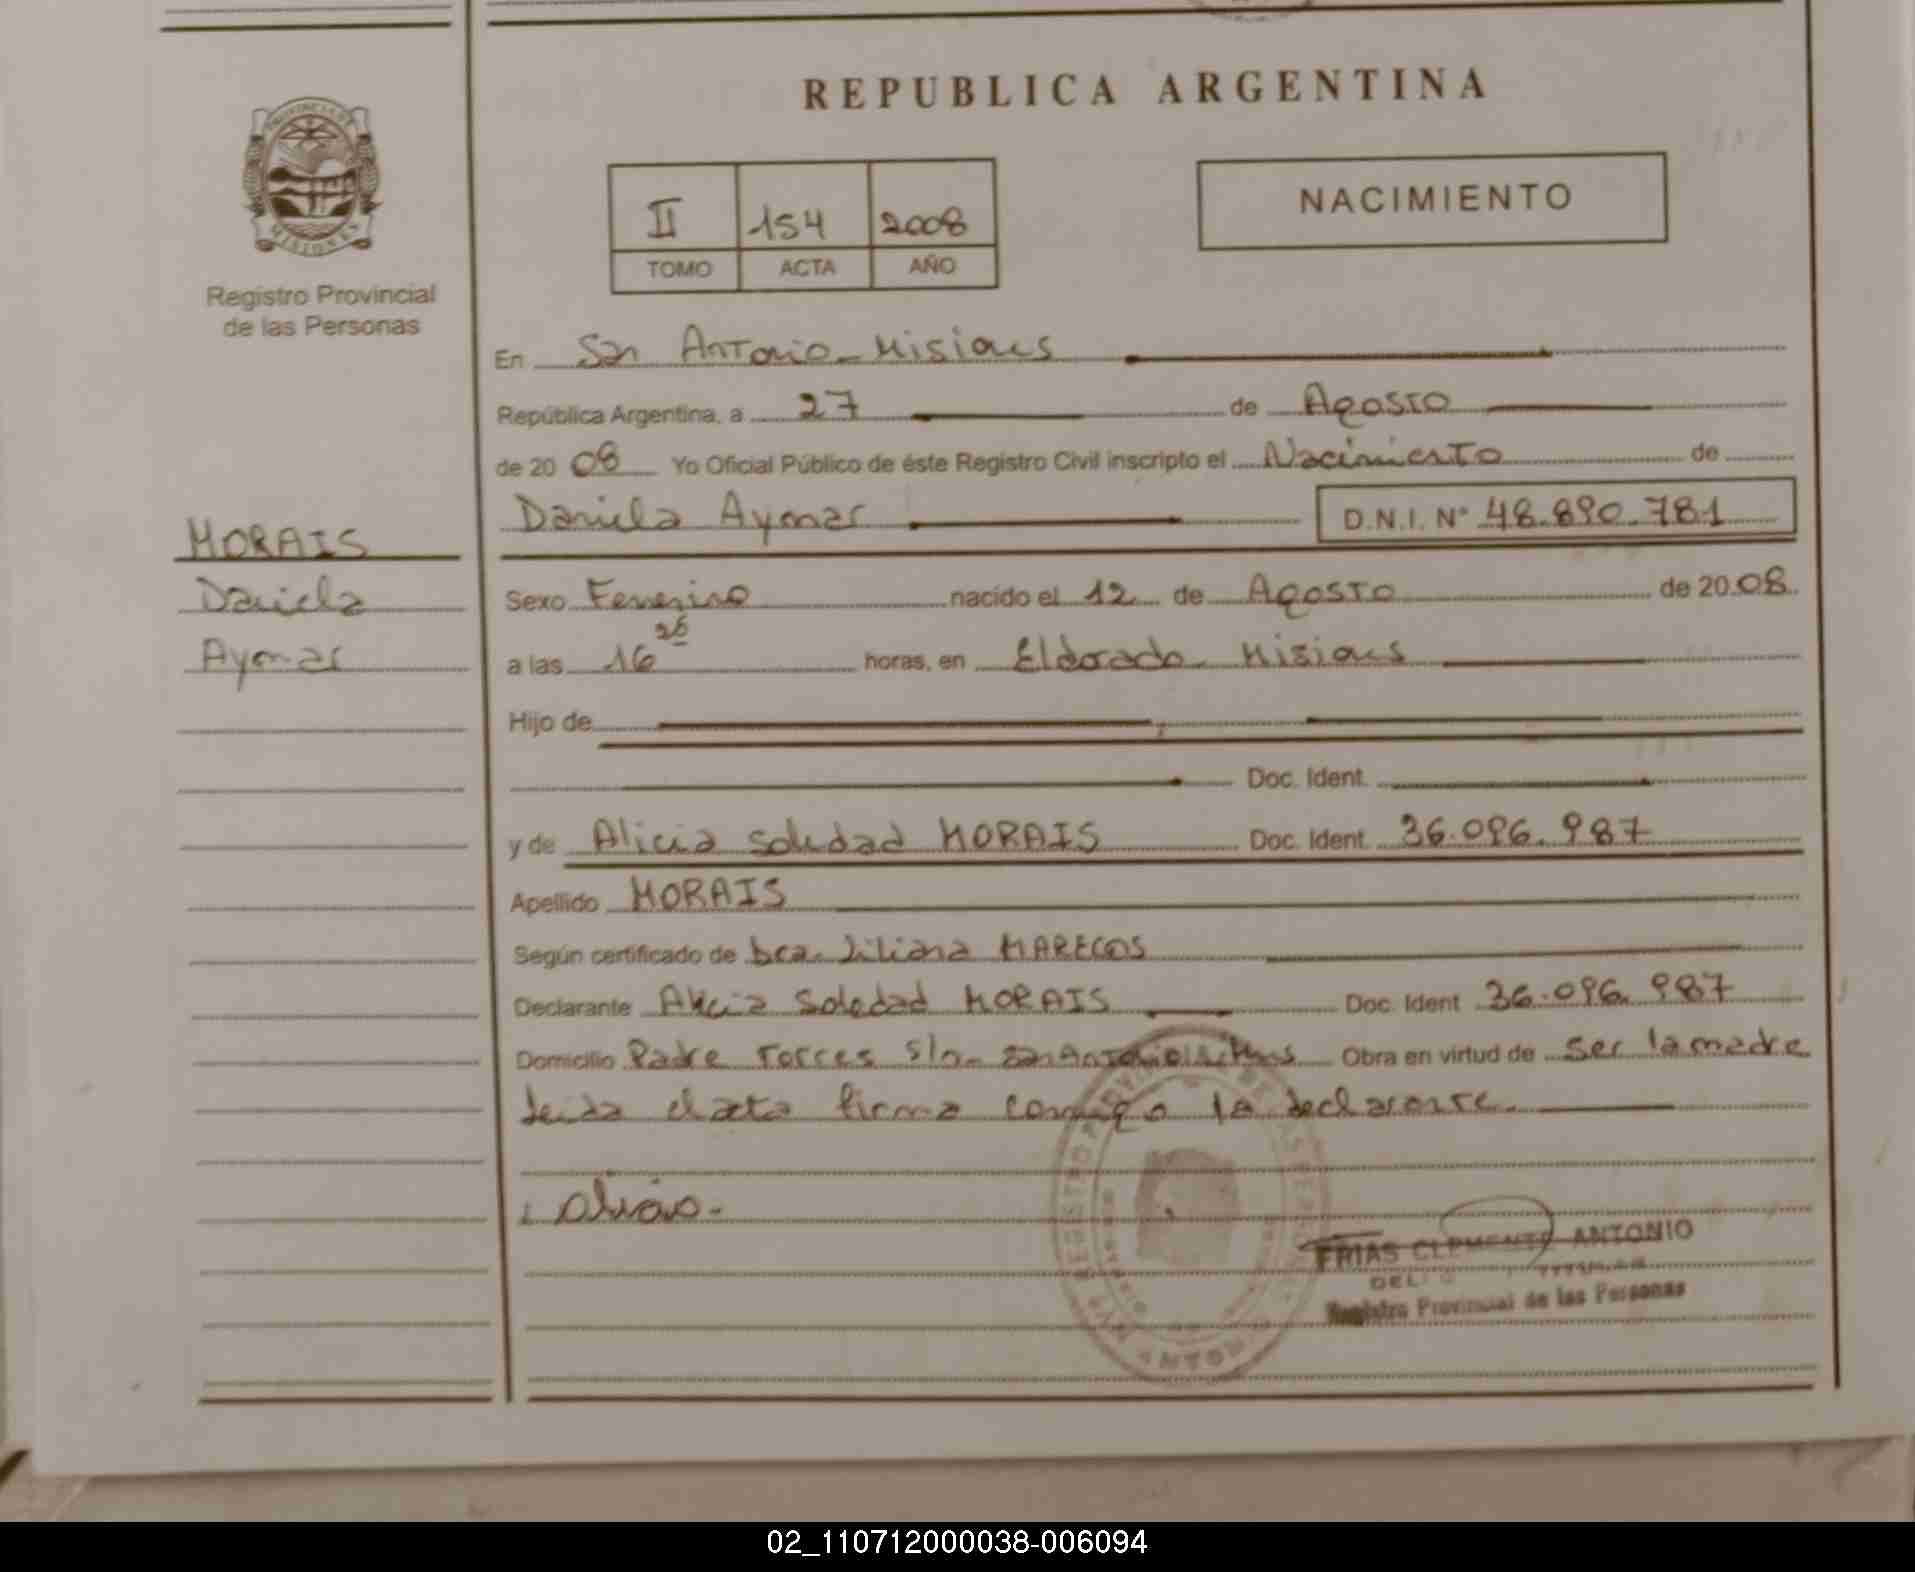 REPUBLICA ARGENTINA
PROVINCIA DE MISIONES
Registro Provincial
de las Personas
II 154 2008
TOMO ACTA AÑO
NACIMIENTO
En San Antonio - Misiones
República Argentina, a 27 de Agosto
de 20 08 Yo Oficial Público de éste Registro Civil inscripto el Nacimiento de
Daniela Aymar D.N.I. Nº 48.890.781
MORAIS
Daniela
Aymar
Sexo Femenino nacido el 12 de Agosto de 20 08.
a las 16 26 horas, en Eldorado - Misiones
Hijo de
Doc. Ident.
y de Alicia Soledad MORAIS Doc. Ident. 36.096.987
Apellido MORAIS
Según certificado de Liliana MARECOS
Declarante Alicia Soledad MORAIS Doc. Ident 36.096.987
Domicilio Padre Torres s/n - San Antonio Obra en virtud de ser la madre
Leida el acta firma conmigo la declarante.
FRIAS CLEMENTE ANTONIO
Registro Provincial de las Personas
02_110712000038-006094